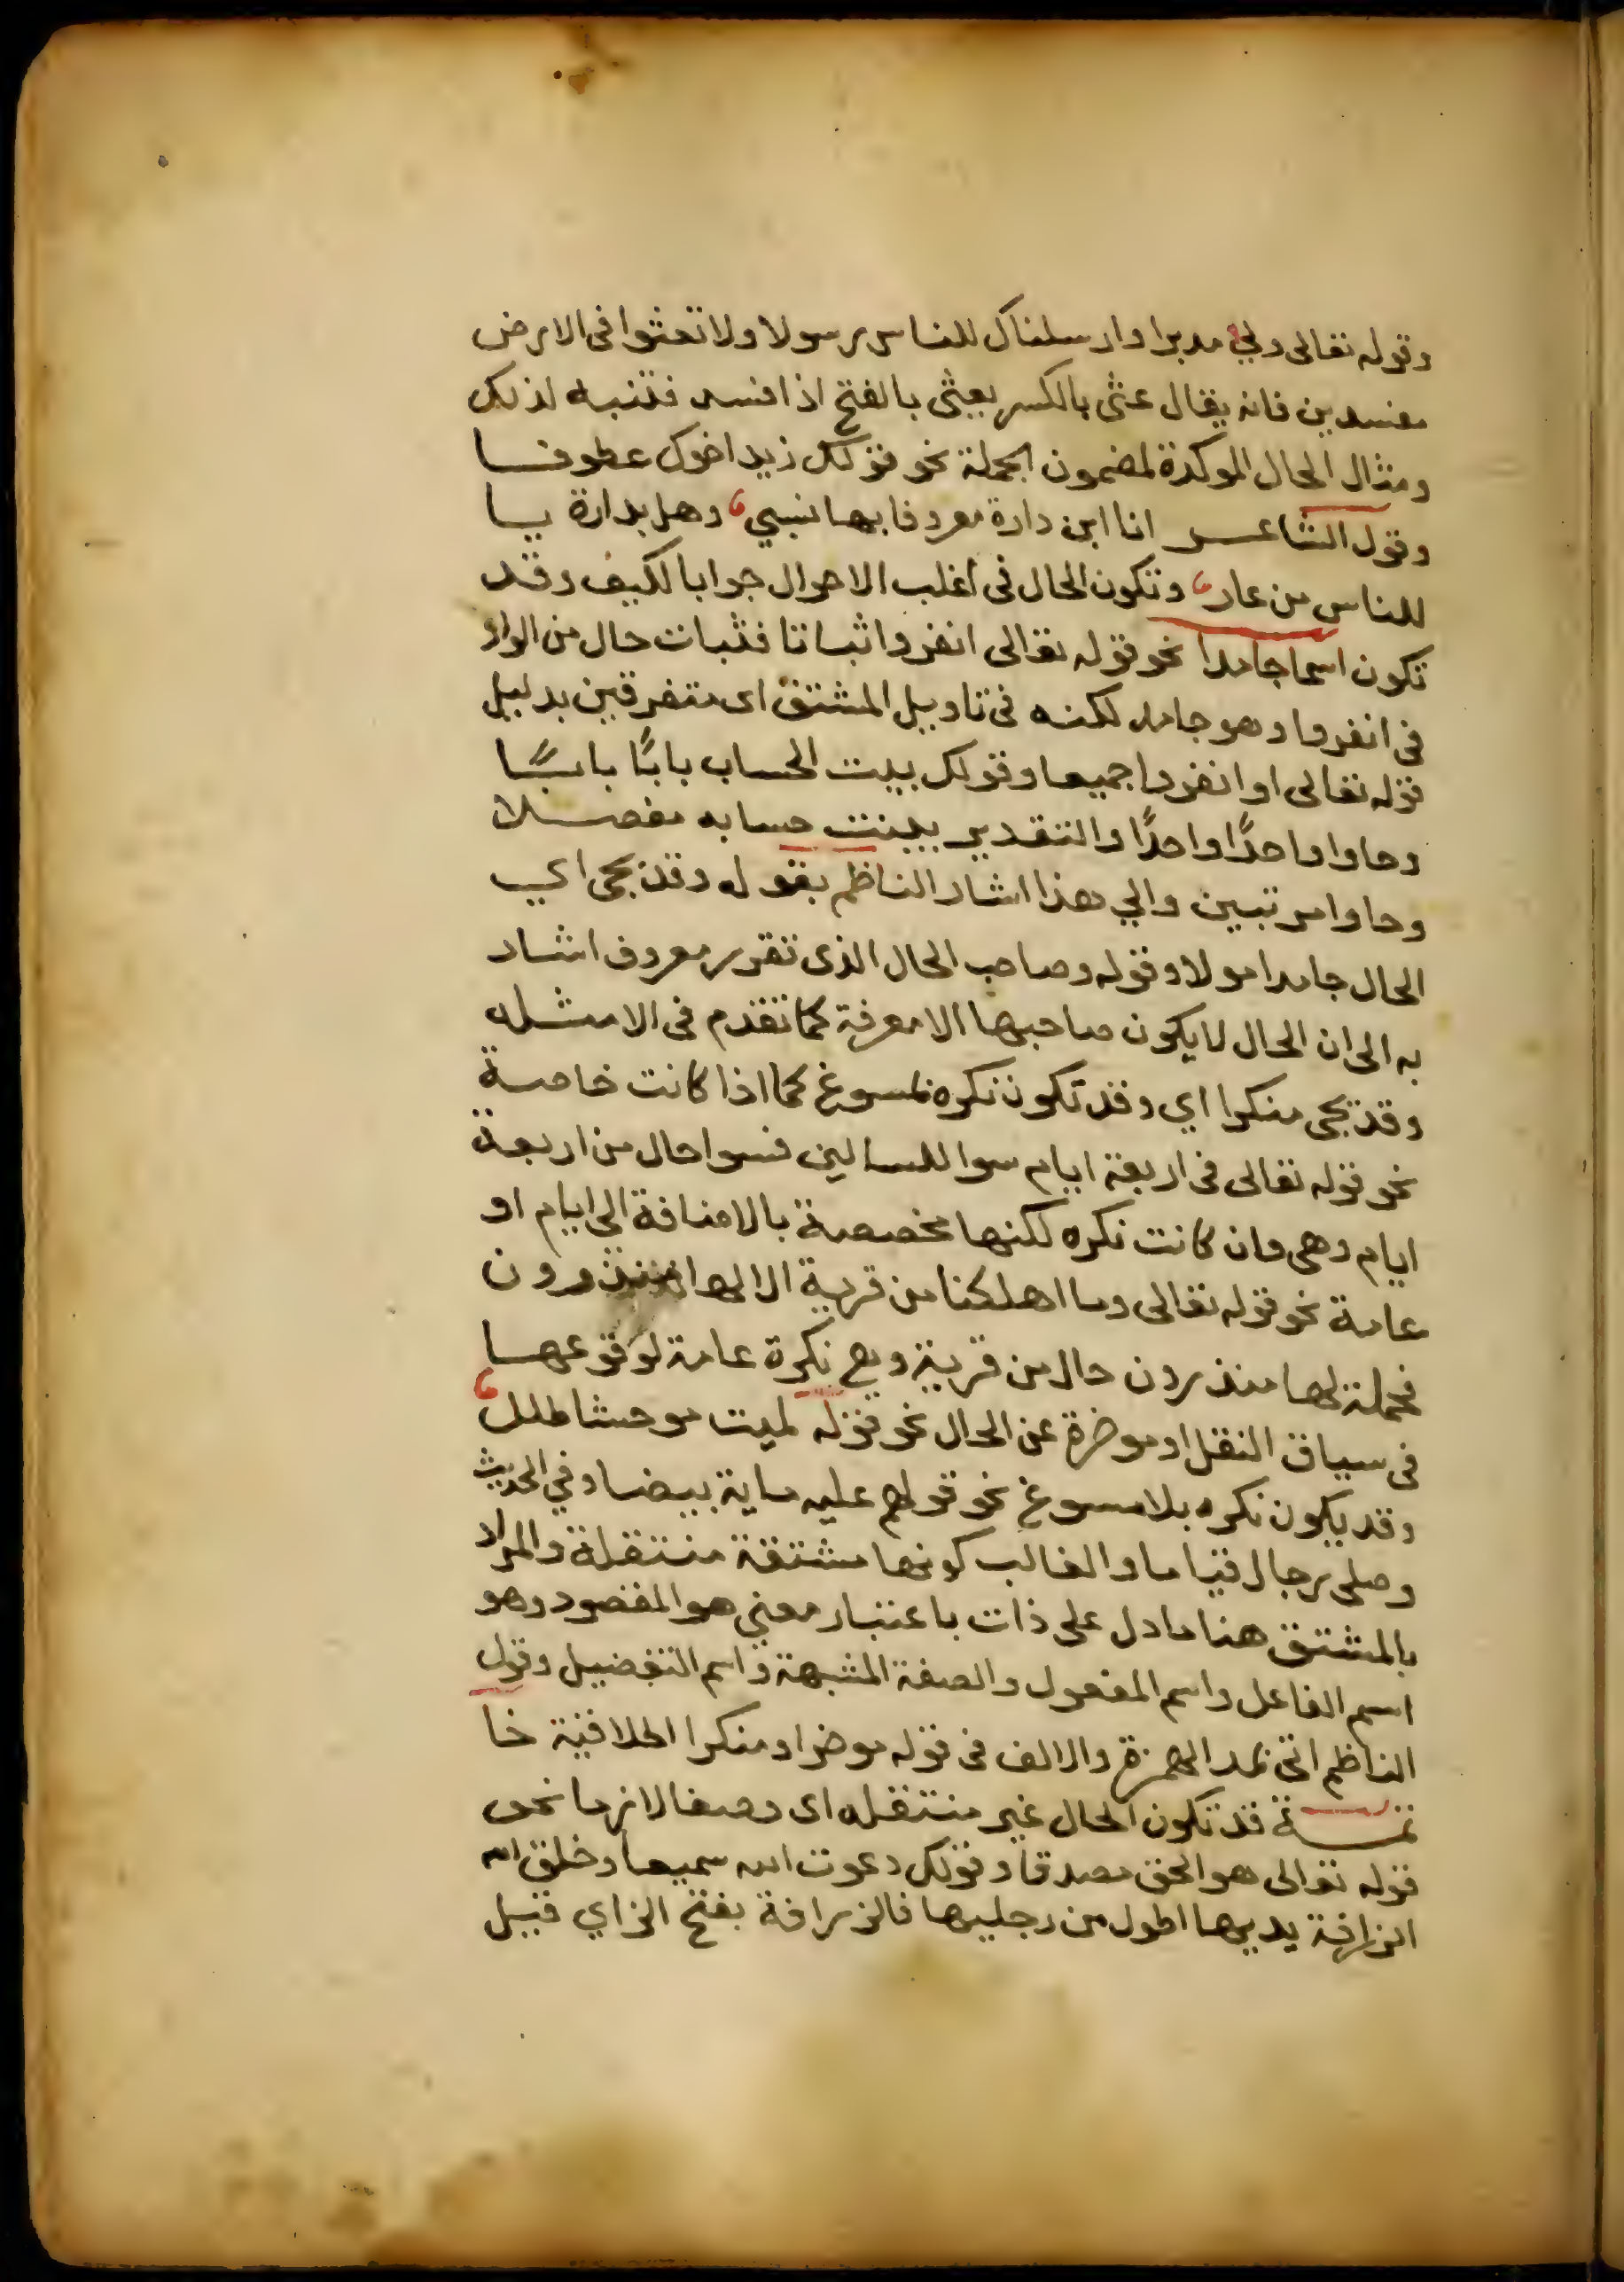 وقوله تعالى ولي مدبرا وارسلناك للناس رسولا ولا تعثوا فى الارض
مفسدين فانه يقال عثى بالكسر يعثى بالفتح اذا افسد فتنبه لذلك
ومثال الحال الموكدة لمضمون الجملة نحو قولك زيد اخوك عطوفا
وقول الشاعر انا ابن دارة معروفا بها نسبي وهل بدارة يا
للناس من عار وتكون الحال فى اغلب الاحوال جوابا لكيف وقد
تكون اسما جامدا نحو قوله تعالى انفروا ثباتا فثبات حال من الواو
فى انفروا وهو جامد لكنه فى تاويل المشتق اى متفرقين بدليل
قوله تعالى او انفروا جميعا وقولك بينت الحساب بابًا بابًا
وجاوا واحدًا واحدًا والتقدير بينت حسابه مفصلا
وجاوا مرتبين والي هذا اشار الناظم بقوله وقد يجى اي
الحال جامدا مولا وقوله وصاحب الحال الذى تقرر معروف اشار
به الى ان الحال لا يكون صاحبها الا معرفة كما تقدم فى الامثله
وقد يجى منكرا اي وقد تكون نكره لمسوغ كما اذا كانت خاصة
نحو قوله تعالى فى اربعة ايام سوا للسالين فسوا حال من اربعة
ايام وهى وان كانت نكره لكنها مخصصة بالاضافة الى ايام او
عامة نحو قوله تعالى وما اهلكنا من قرية الا لها منذرون
فجملة لها منذرون حال من قرية وهي نكرة عامة لوقوعها
فى سياق النقل او موخرة عن الحال نحو قوله لميت موحشا طلل
وقد يكون نكره بلا مسوغ نحو قولهم عليه ماية بيضا وفي الحديث
وصلى رجال قياما والغالب كونها مشتقة منتقلة والمراد
بالمشتق هنا ما دل على ذات باعتبار معني هو المقصود وهو
اسم الفاعل واسم المفعول والصفة المشبهة واسم التفضيل وقول
الناظم اتى بمد الهمزة والالف فى قوله موخرا ومنكرا اطلاقية خا
تمة قد تكون الحال غير منتقله اى وصفا لازما نحو
قوله تعالى هو الحق مصدقا وقولك دعوت الله سميعا وخلق الله
الزرافة يديها اطول من رجليها فالزرافة بفتح الزاي قبل